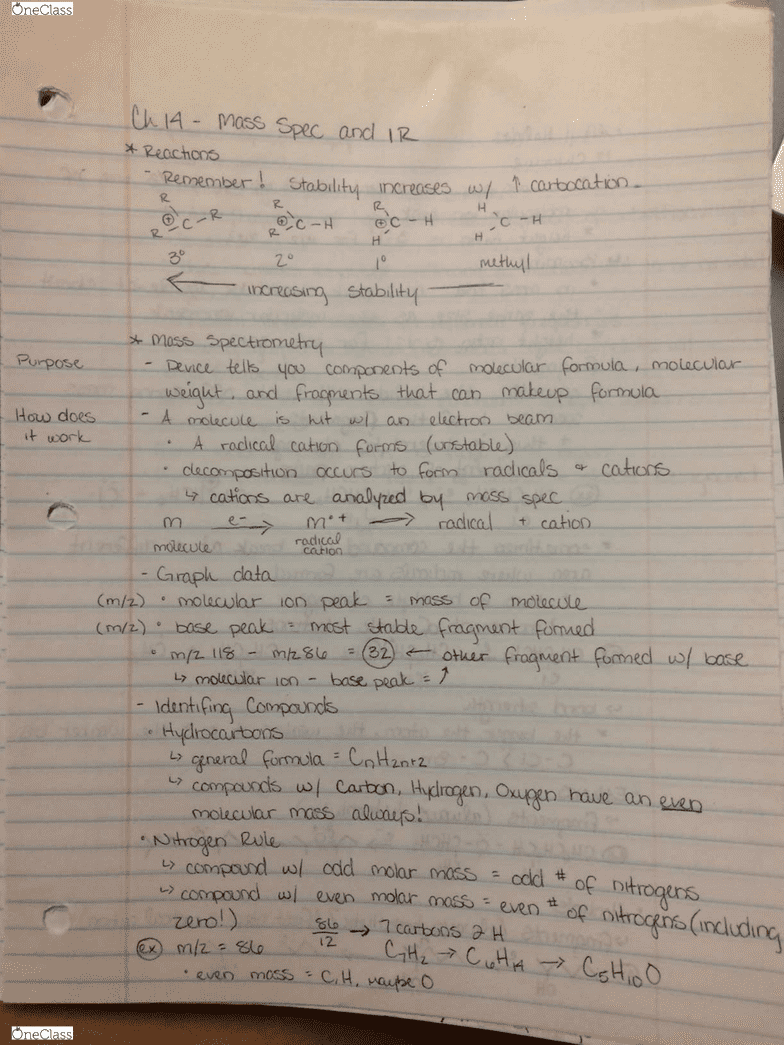 OneClass
Ch 14 - Mass Spec and IR
* Reactions
- Remember! Stability increases w/ ↑ carbocation.
R R R H
⊕C-R ⊕C-H ⊕C-H C-H
R R H H
3° 2° 1° methyl
← increasing stability
* Mass Spectrometry
Purpose - Device tells you components of molecular formula, molecular
weight, and fragments that can makeup formula
How does - A molecule is hit w/ an electron beam
it work • A radical cation forms (unstable)
• decomposition occurs to form radicals & cations
↳ cations are analyzed by mass spec
m e- → m•+ → radical + cation
molecule radical
cation
- Graph data
(m/z) • molecular ion peak = mass of molecule
(m/z) • base peak = most stable fragment formed
• m/z 118 - m/z 86 = 32 ← other fragment formed w/ base
↳ molecular ion - base peak = ↑
- Identifing Compounds
• Hydrocarbons
↳ general formula = CnH2n+2
↳ compounds w/ Carbon, Hydrogen, Oxygen have an even
molecular mass always!
• Nitrogen Rule
↳ compound w/ odd molar mass = odd # of nitrogens
↳ compound w/ even molar mass = even # of nitrogens (including
zero!) 86/12 → 7 carbons 2 H
ex m/z = 86 C7H2 → C6H14 → C5H10O
• even mass = C, H, maybe O
OneClass